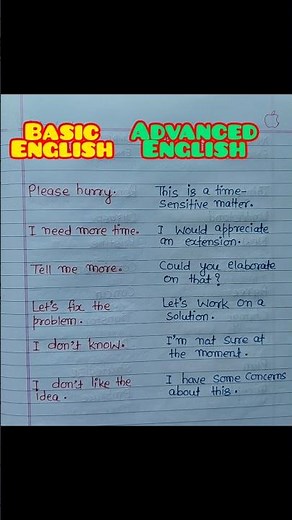 BASIC ENGLISH
ADVANCED ENGLISH
Please hurry.
This is a time-
sensitive matter.
I need more time.
I would appreciate
an extension.
Tell me more.
Could you elaborate
on that?
Let's fix the
problem.
Let's work on a
solution.
I don't know.
I'm not sure at
the moment.
I don't like the
idea.
I have some concerns
about this.